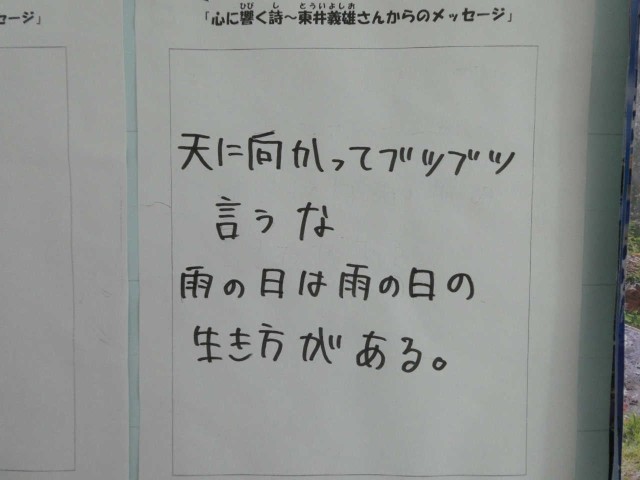 ージ」
「心に響く詩～東井義雄さんからのメッセージ」
天に向かってブツブツ
言うな
雨の日は雨の日の
生き方がある。